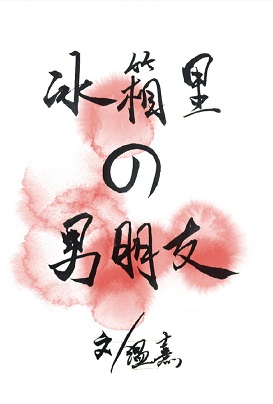 冰箱里
の
男朋友
文/温熹